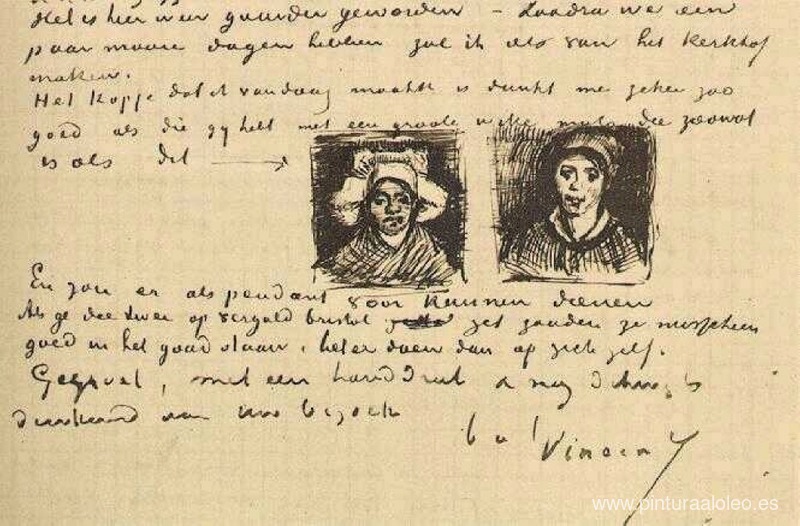 Het is hier weer guurder geworden – Zoodra we een
paar mooie dagen hebben zal ik iets van het kerkhof
maken.
Het kopje dat ik vandaag maakte is dunkt me zeker zoo
goed als die gij hebt met een groote witte muts die zoowat
is als dit
En zou er als pendant voor kunnen dienen
Als ge die twee op verguld bristol zet zouden ze misschien
goed in het goud staan, beter doen dan op zich zelf.
Gegroet, met een handdruk & nog
dankend van uw bezoek
t à t Vincent
www.pinturaaloleo.es